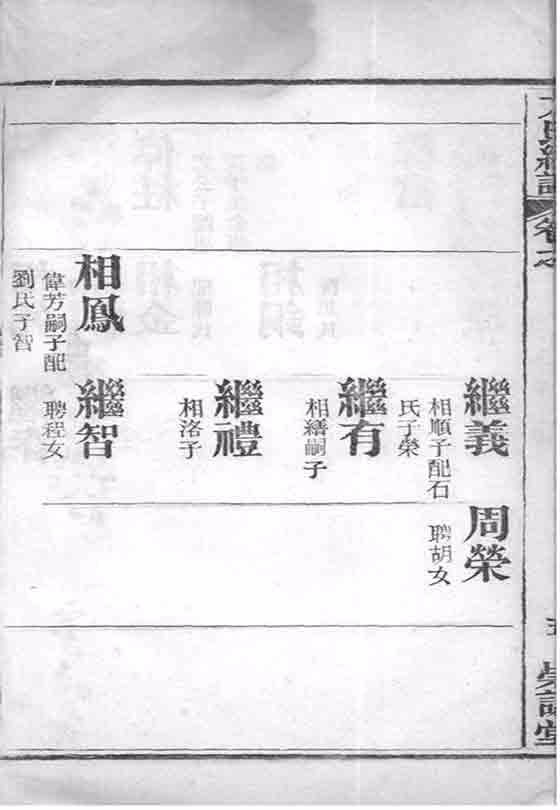 卷之
繼義
相順子配石
氏子榮
周榮
聘胡女
繼有
相繕嗣子
繼禮
相洛子
相鳳
偉芳嗣子配
劉氏子智
繼智
聘程女